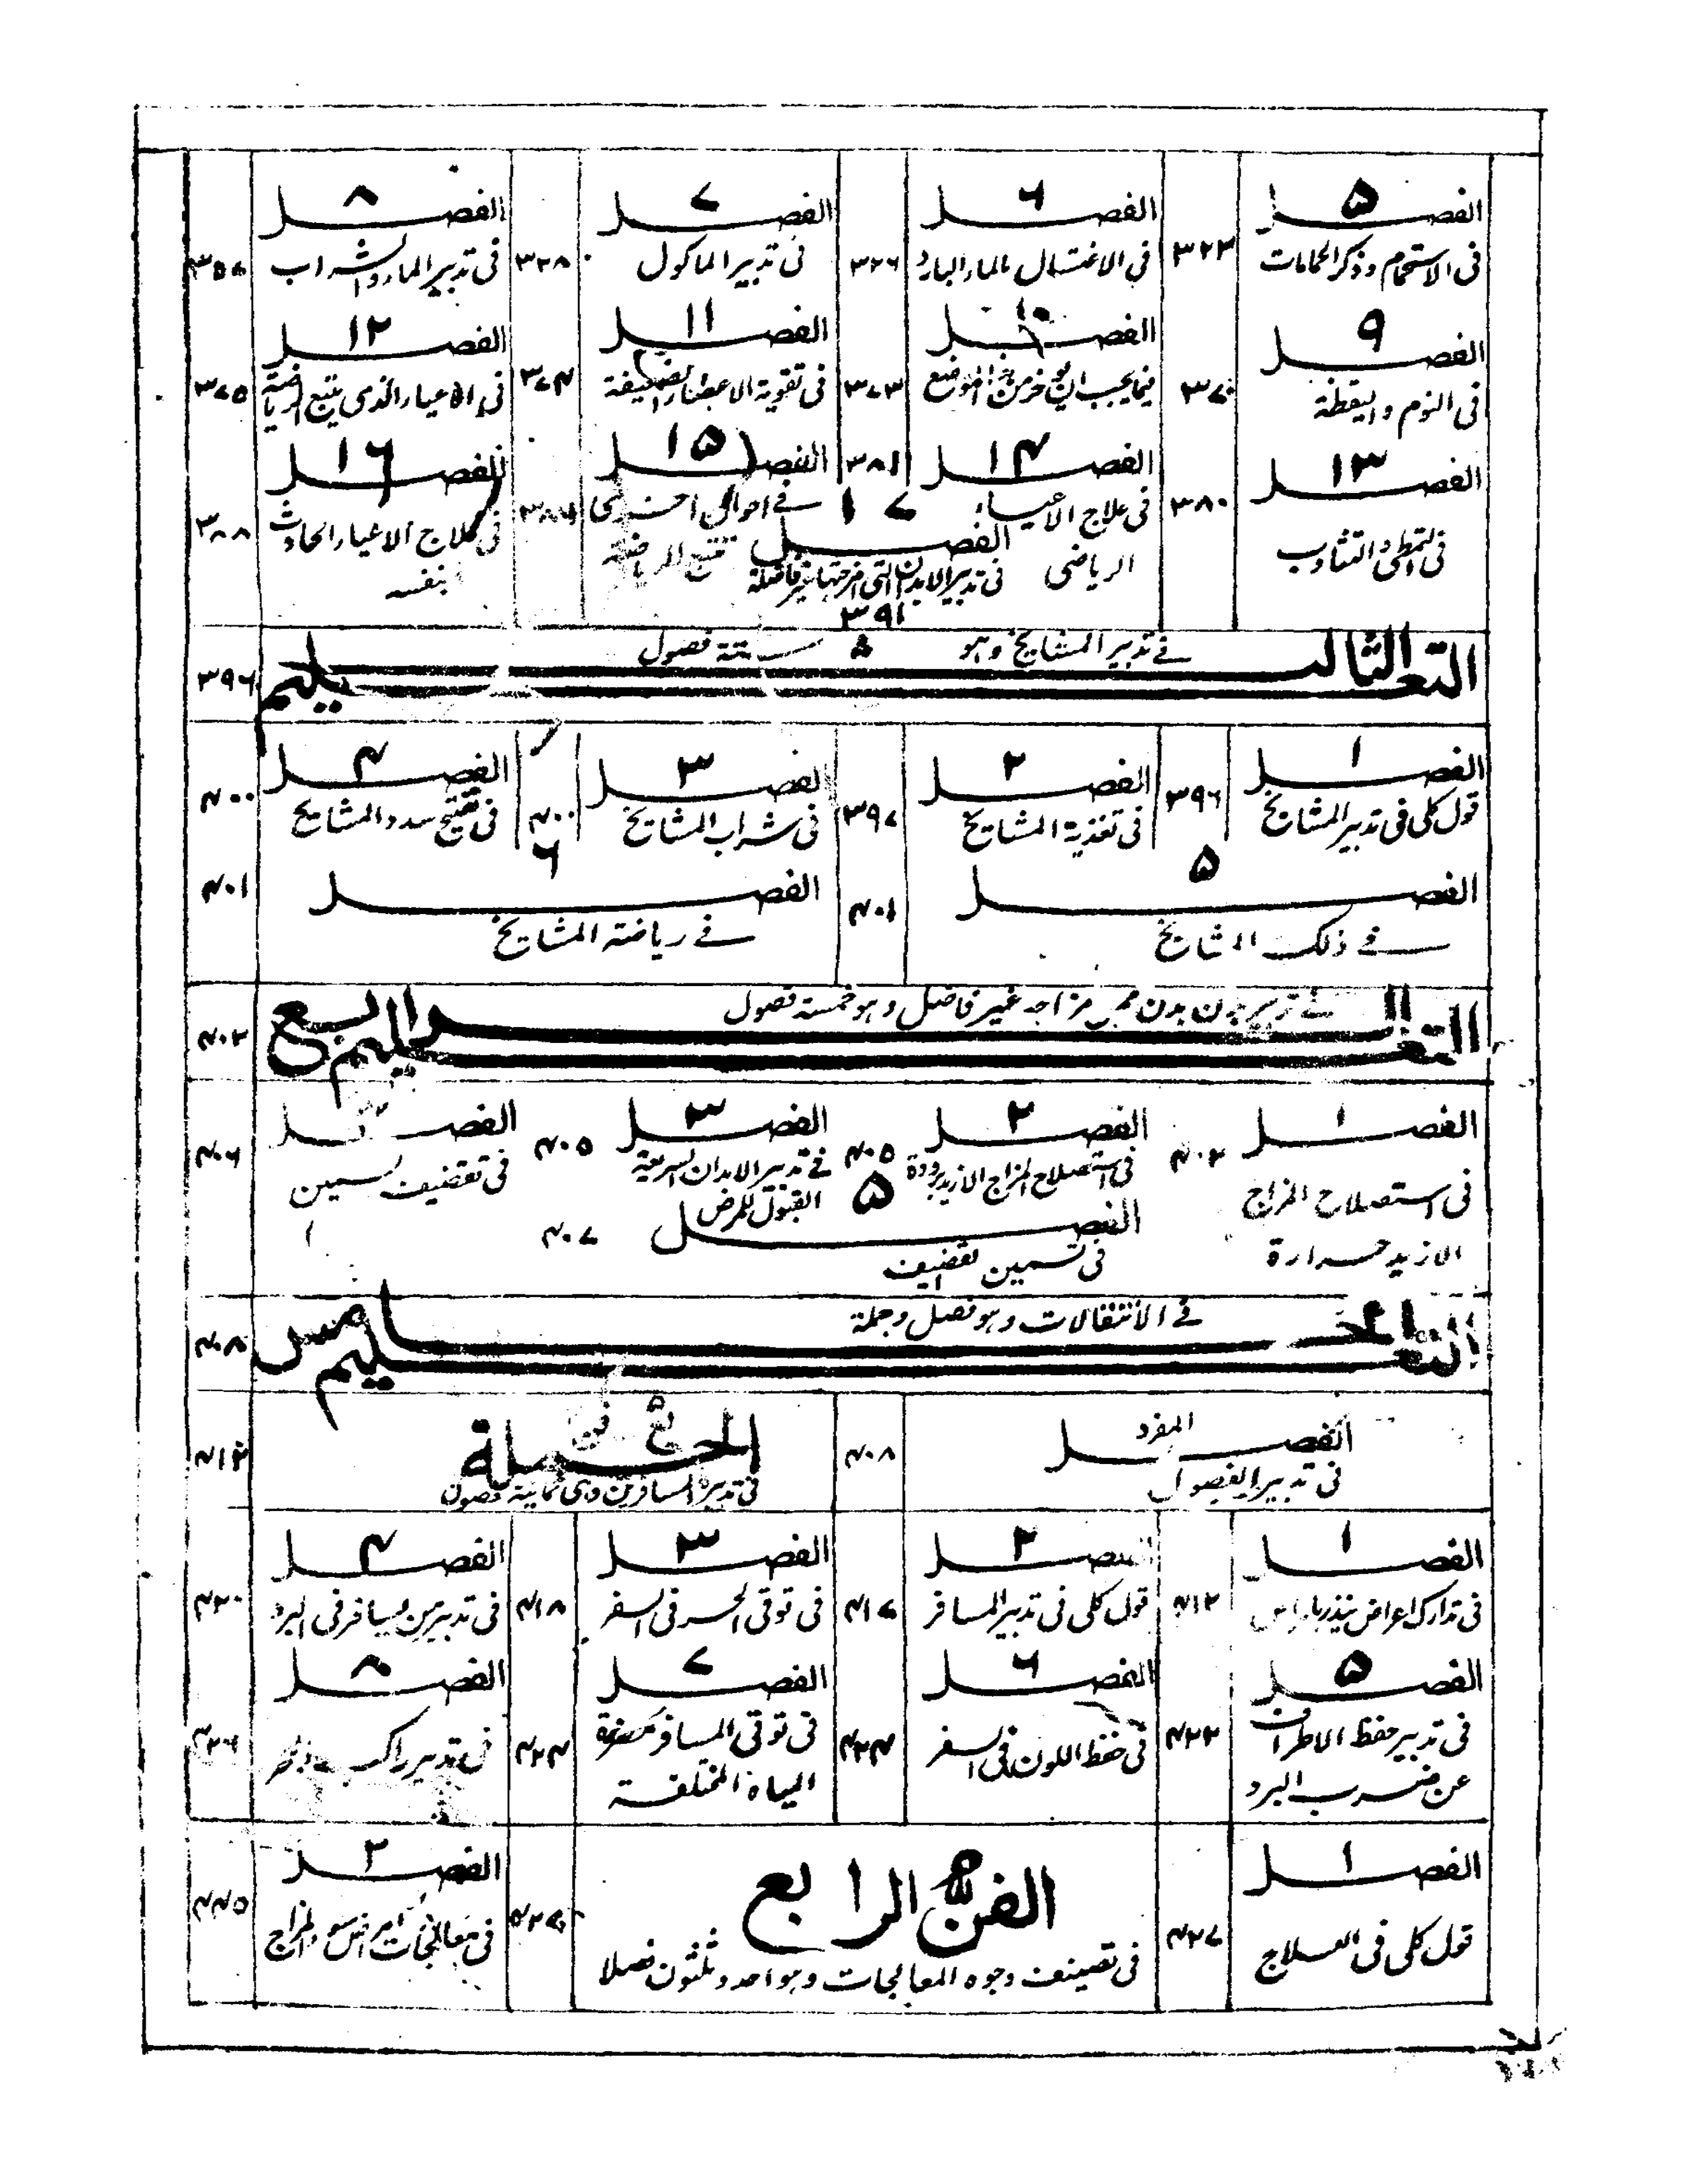 الفصل ۵
فى الاستحمام وذكر الحمامات
۳۲۳
الفصل ۶
فى الاغتسال بالماء البارد
۳۲۶
الفصل ۷
فى تدبير الماكول
۳۲۸
الفصل ۸
فى تدبير الماء والشراب
۳۵۷
الفصل ۹
فى النوم واليقظة
۳۷۰
الفصل ۱۰
فيما يجب ان يوخر من الموضع
۳۷۳
الفصل ۱۱
فى تقوية الاعضاء الضعيفة
۳۷۴
الفصل ۱۲
فى الاعياء الذى يتبع الرياضة
۳۷۵
الفصل ۱۳
فى التمطى والتثاوب
۳۸۰
الفصل ۱۴
فى علاج الاعياء
الرياضى
۳۸۱
الفصل ۱۵
فے احوال اخرى
تتبع الرياضة
الفصل ۱۶
فى علاج الاعياء الحادث
بنفسه
۳۸۸
الفصل ۱۷
فى تدبير الابدان التى امزجتها غير فاضلة
۳۹۱
التعليم الثالث
فے تدبير المشايخ وهو ستة فصول
۳۹۶
الفصل ۱
قول كلى فى تدبير المشايخ
۳۹۶
الفصل ۲
فى تغذية المشايخ
۳۹۷
الفصل ۳
فى شراب المشايخ
۴۰۰
الفصل ۴
فى تفتيح سدد المشايخ
۴۰۰
الفصل ۵
فے دلك المشايخ
۴۰۱
الفصل ۶
فے رياضة المشايخ
۴۰۱
التعليم الرابع
فے تدبير بدن من مزاجه غير فاضل وهو خمسة فصول
۴۰۲
الفصل ۱
فى استصلاح المزاج
الازيد حرارة
۴۰۲
الفصل ۲
فى استصلاح المزاج الازيد برودة
۴۰۵
الفصل ۳
فے تدبير الابدان السريعة
القبول للمرض
۴۰۵
الفصل
فى تقضيف السمين
۴۰۶
الفصل ۵
فى تسمين القضيف
۴۰۷
التعليم الخامس
فے الانتقالات وهو فصل وجملة
۴۰۸
الفصل المفرد
فى تدبير الفصول
۴۰۸
الجملة
فى تدبير المسافرين وهى ثمانية فصول
۴۱۲
الفصل ۱
فى تدارك اعراض تنذر بامراض
۴۱۲
الفصل ۲
قول كلى فى تدبير المسافر
۴۱۷
الفصل ۳
فى توقى الحر فى السفر
۴۱۸
الفصل ۴
فى تدبير من يسافر فى البرد
۴۲۰
الفصل ۵
فى تدبير حفظ الاطراف
عن ضرب البرد
۴۲۲
الفصل ۶
فى حفظ اللون فى السفر
۴۲۴
الفصل ۷
فى توقى المسافر مضرة
المياه المختلفة
۴۲۴
الفصل ۸
فى تدبير راكب البحر
۴۲۶
الفن الرابع
فى تصنيف وجوه المعالجات وهو احد وثلثون فصلا
الفصل ۱
قول كلى فى العلاج
۴۲۷
الفصل ۲
فى معالجات امراض سوء المزاج
۴۴۵